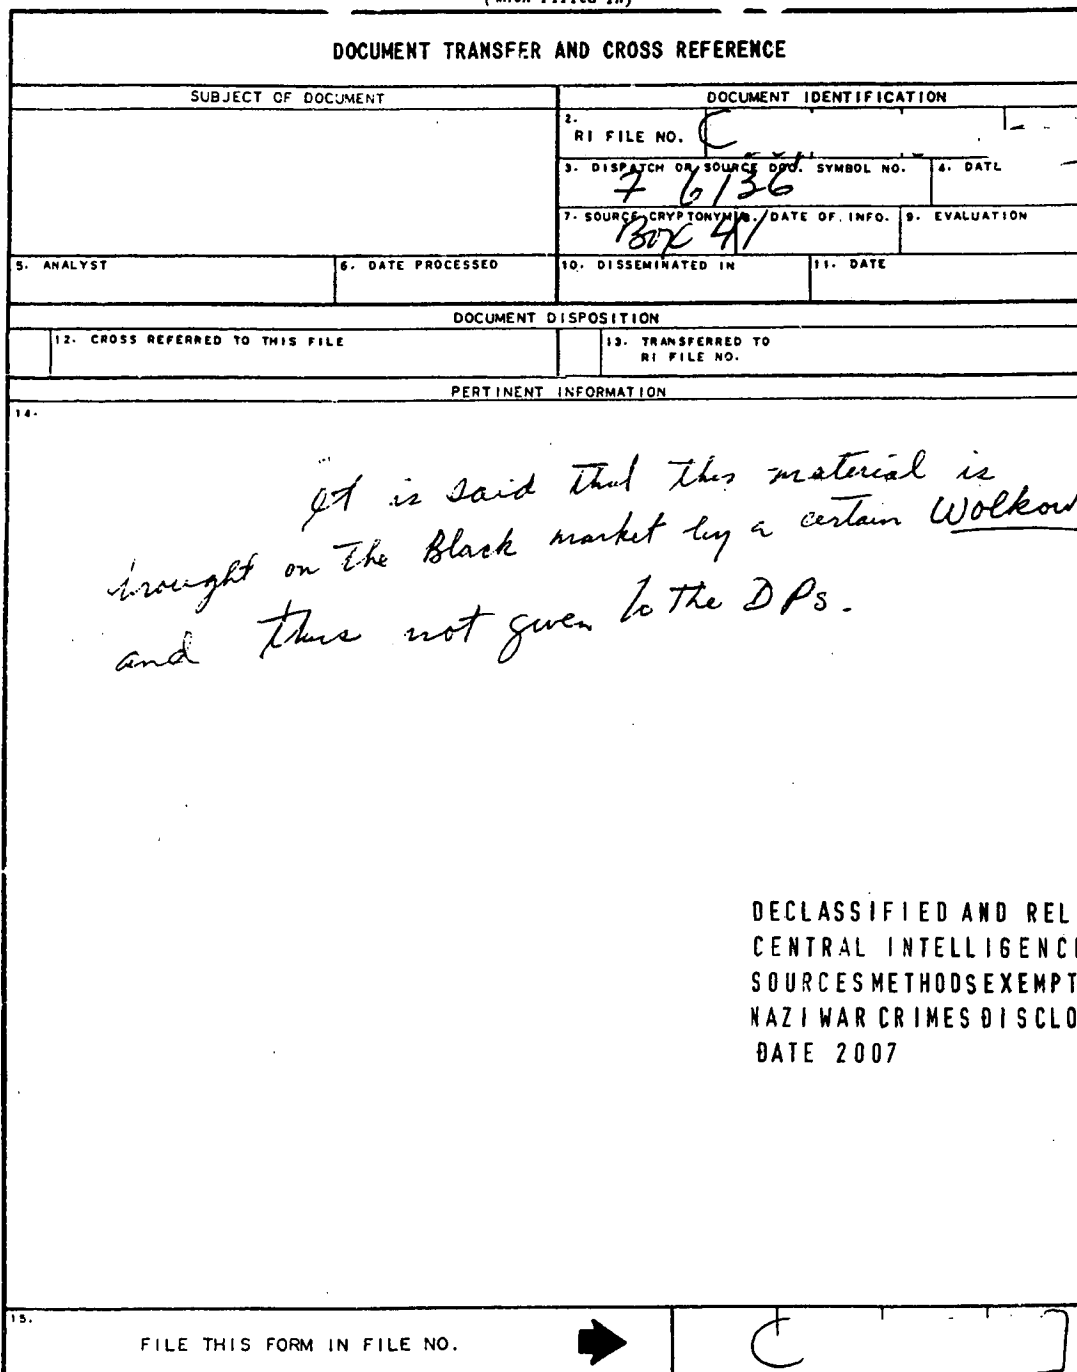 (When Filled In)
DOCUMENT TRANSFER AND CROSS REFERENCE
SUBJECT OF DOCUMENT
DOCUMENT IDENTIFICATION
2.
RI FILE NO.
3. DISPATCH OR SOURCE DOC. SYMBOL NO.
4. DATE
7 6136
7. SOURCE CRYPTONYM
8. DATE OF INFO.
9. EVALUATION
Box 41
5. ANALYST
6. DATE PROCESSED
10. DISSEMINATED IN
11. DATE
DOCUMENT DISPOSITION
12. CROSS REFERRED TO THIS FILE
13. TRANSFERRED TO
RI FILE NO.
PERTINENT INFORMATION
14.
It is said that this material is
brought on the Black market by a certain Wolkow
and thus not given to the DPs.
DECLASSIFIED AND REL
CENTRAL INTELLIGENC
SOURCES METHODS EXEMPT
NAZI WAR CRIMES DISCLO
DATE 2007
15.
FILE THIS FORM IN FILE NO.